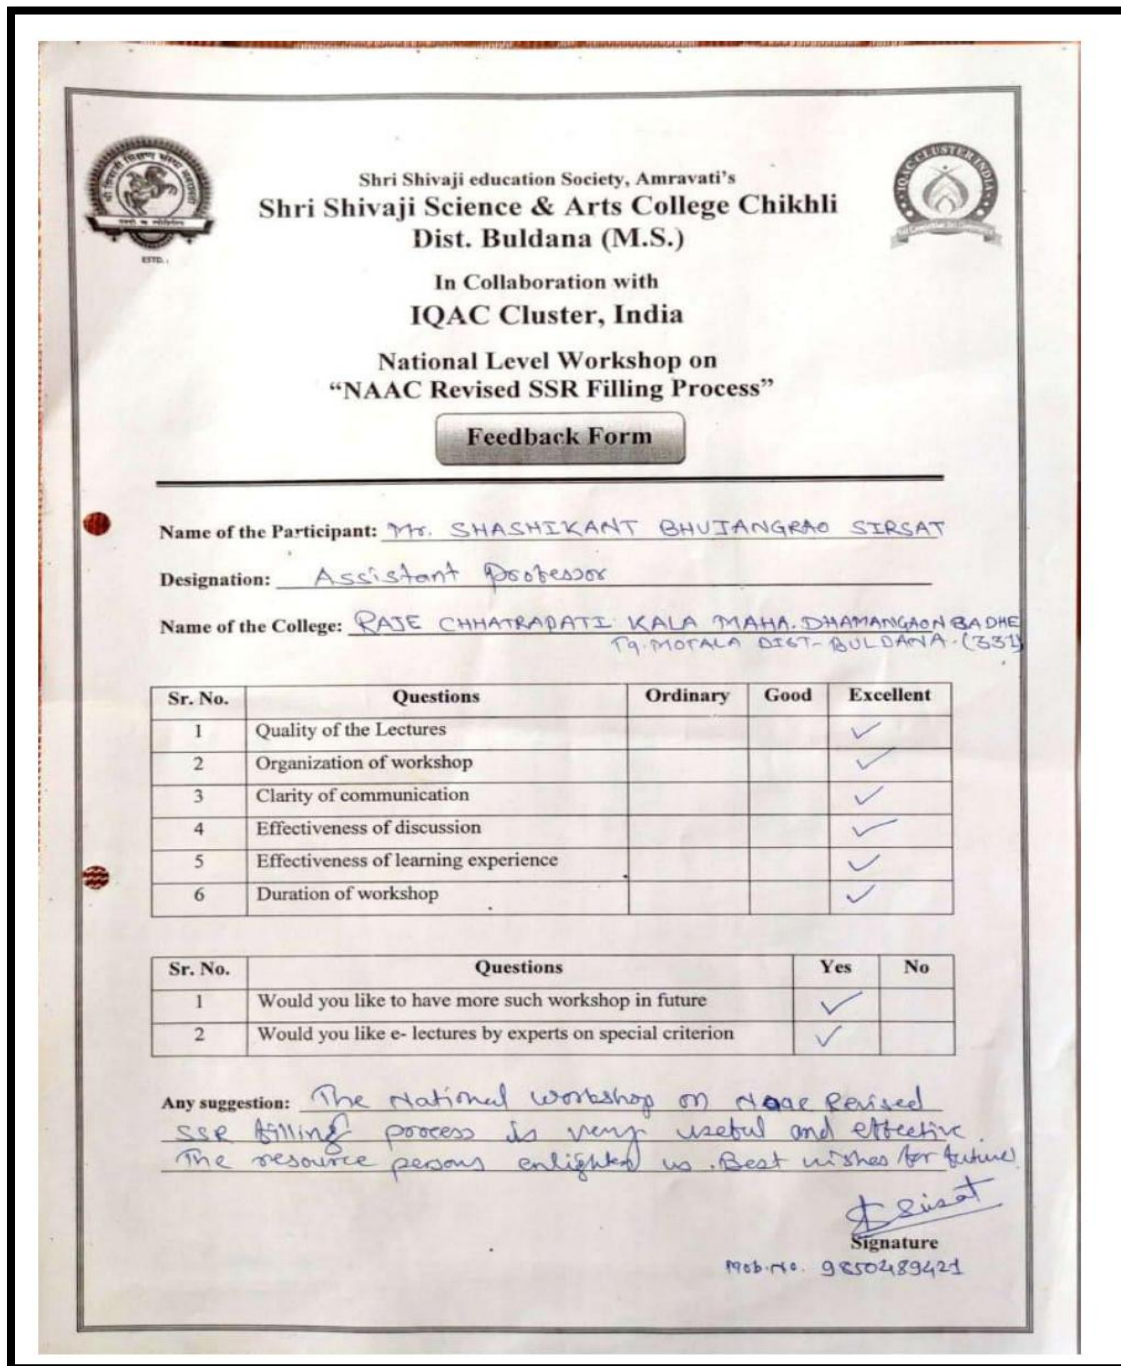 श्री शिवाजी शिक्षण संस्था अमरावती
ESTD.
IQAC CLUSTER INDIA
Shri Shivaji education Society, Amravati's
Shri Shivaji Science & Arts College Chikhli
Dist. Buldana (M.S.)
In Collaboration with
IQAC Cluster, India
National Level Workshop on
“NAAC Revised SSR Filling Process”
Feedback Form
Name of the Participant: Mr. SHASHIKANT BHUJANGRAO SIRSAT
Designation: Assistant Professor
Name of the College: RAJE CHHATRAPATI KALA MAHA. DHAMANGAON BADHE
Tq. MOTALA DIST-BULDANA. (331)
Sr. No. Questions Ordinary Good Excellent
1 Quality of the Lectures ✓
2 Organization of workshop ✓
3 Clarity of communication ✓
4 Effectiveness of discussion ✓
5 Effectiveness of learning experience ✓
6 Duration of workshop ✓
Sr. No. Questions Yes No
1 Would you like to have more such workshop in future ✓
2 Would you like e- lectures by experts on special criterion ✓
Any suggestion: The National workshop on Naac Revised
SSR filling process is very useful and effective.
The resource persons enlighted us. Best wishes for future
Sirsat
Signature
Mob. No. 9850489421